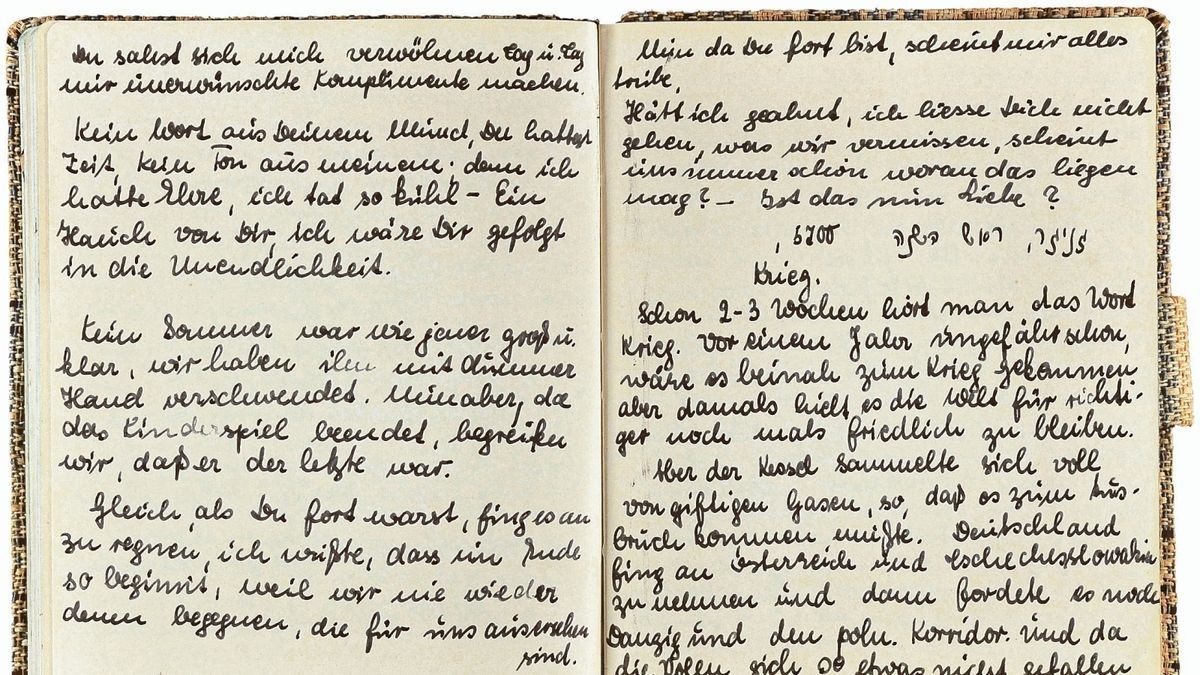 Du sahst sich mich verwöhnen Tag u. Tag
mir unerwünschte Komplimente machen.
Kein Wort aus Deinem Mund, Du hattest
Zeit, kein Ton aus meinem; denn ich
hatte Ehre, ich tat so kühl – Ein
Hauch von Dir, ich wäre Dir gefolgt
in die Unendlichkeit.
Kein Sommer war wie jener groß u.
klar, wir haben ihn mit dummer
Hand verschwendet. Nun aber, da
das Kinderspiel beendet, begreifen
wir, daß er der letzte war.
Gleich, als Du fort warst, fing es an
zu regnen, ich wußte, dass ein Ende
so beginnt, weil wir nie wieder
denen begegnen, die für uns ausersehen
sind.
Nun da Du fort bist, scheint mir alles
trübe,
Hätt ich geahnt, ich liesse Dich nicht
gehen, was wir vermissen, scheint
uns immer schön woran das liegen
mag? – Ist das nun Liebe?
, 5700 ראש השנה
Krieg.
Schon 2-3 Wochen hört man das Wort
Krieg. Vor einem Jahr ungefähr schon,
wäre es beinah zum Krieg gekommen
aber damals hielt es die Welt für richti-
ger noch mals friedlich zu bleiben.
Aber der Kessel sammelte sich voll
von giftigen Gasen, so, daß es zum Aus-
bruch kommen mußte. Deutschland
fing an Österreich und Tschechosslowakin
zu nehmen und dann fordete es noch
Danzig und den poln. Korridor. Und da
die Polen sich so etwas nicht gefallen